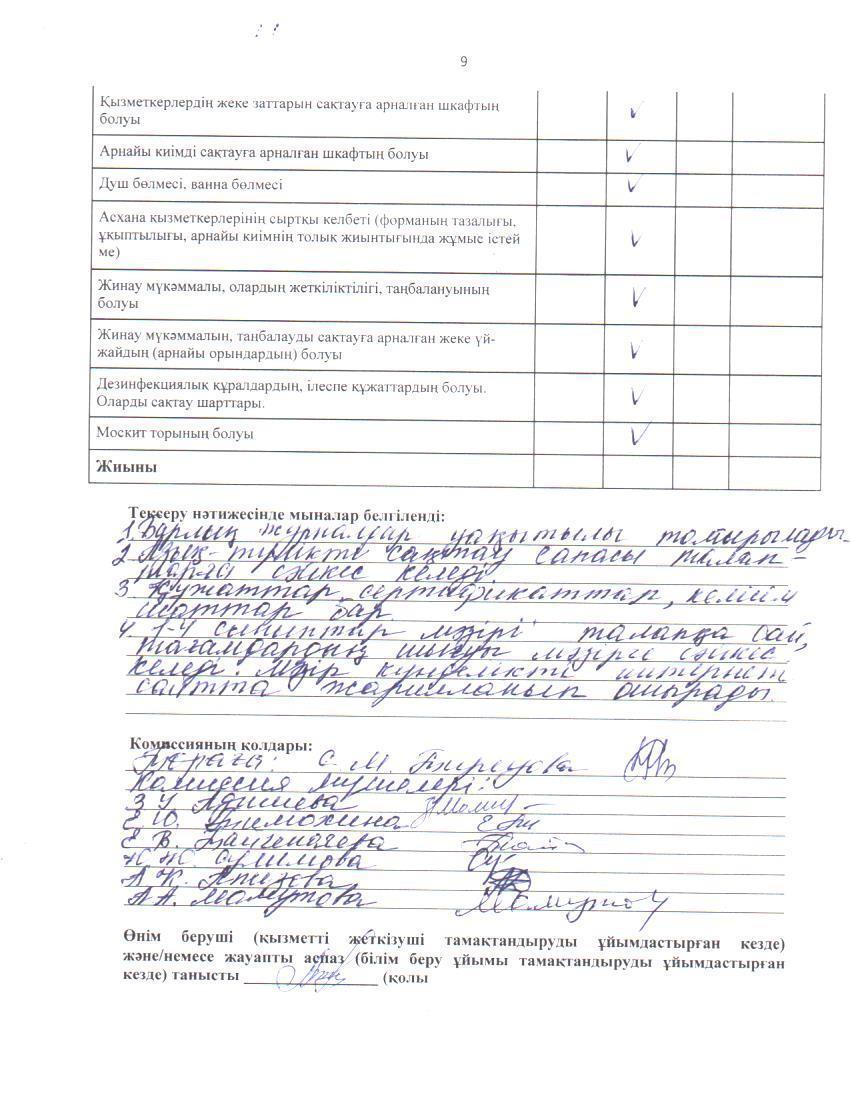 9
Қызметкерлердің жеке заттарын сақтауға арналған шкафтың
болуы
Арнайы киімді сақтауға арналған шкафтың болуы
Душ бөлмесі, ванна бөлмесі
Асхана қызметкерлерінің сыртқы келбеті (форманың тазалығы,
ұқыптылығы, арнайы киімнің толық жиынтығында жұмыс істей
ме)
Жинау мүкәммалы, олардың жеткіліктілігі, таңбалануының
болуы
Жинау мүкәммалын, таңбалауды сақтауға арналған жеке үй-
жайдың (арнайы орындардың) болуы
Дезинфекциялық құралдардың, ілеспе құжаттардың болуы.
Оларды сақтау шарттары.
Москит торының болуы
Жиыны
Тексеру нәтижесінде мыналар белгіленді:
1. Барлық журналдар уақытылы толтырылады.
2. Азық-түлікті сақтау сапасы талап-
тарға сәйкес келеді
3. Құжаттар, сертификаттар, келісім
шарттар бар.
4. 1-4 сыныптар мәзірі талапқа сай,
тағамдардың шығуы мәзірге сәйкес
келеді. Мәзір күнделікті интернет
сайтта жарияланып отырады.
Комиссияның қолдары:
Төраға: С. М.
Комиссия мүшелері:
З У
Е. Ю.
Е В.
Ю. Ю.
А К.
А А.
Өнім беруші (қызметті жеткізуші тамақтандыруды ұйымдастырған кезде)
және/немесе жауапты аспаз (білім беру ұйымы тамақтандыруды ұйымдастырған
кезде) танысты (қолы